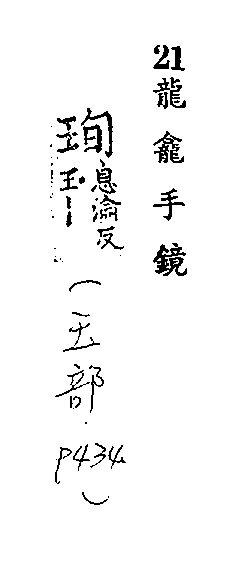 21龍龕手鏡
珣息淪反
玉丨
(玉部.
P434)